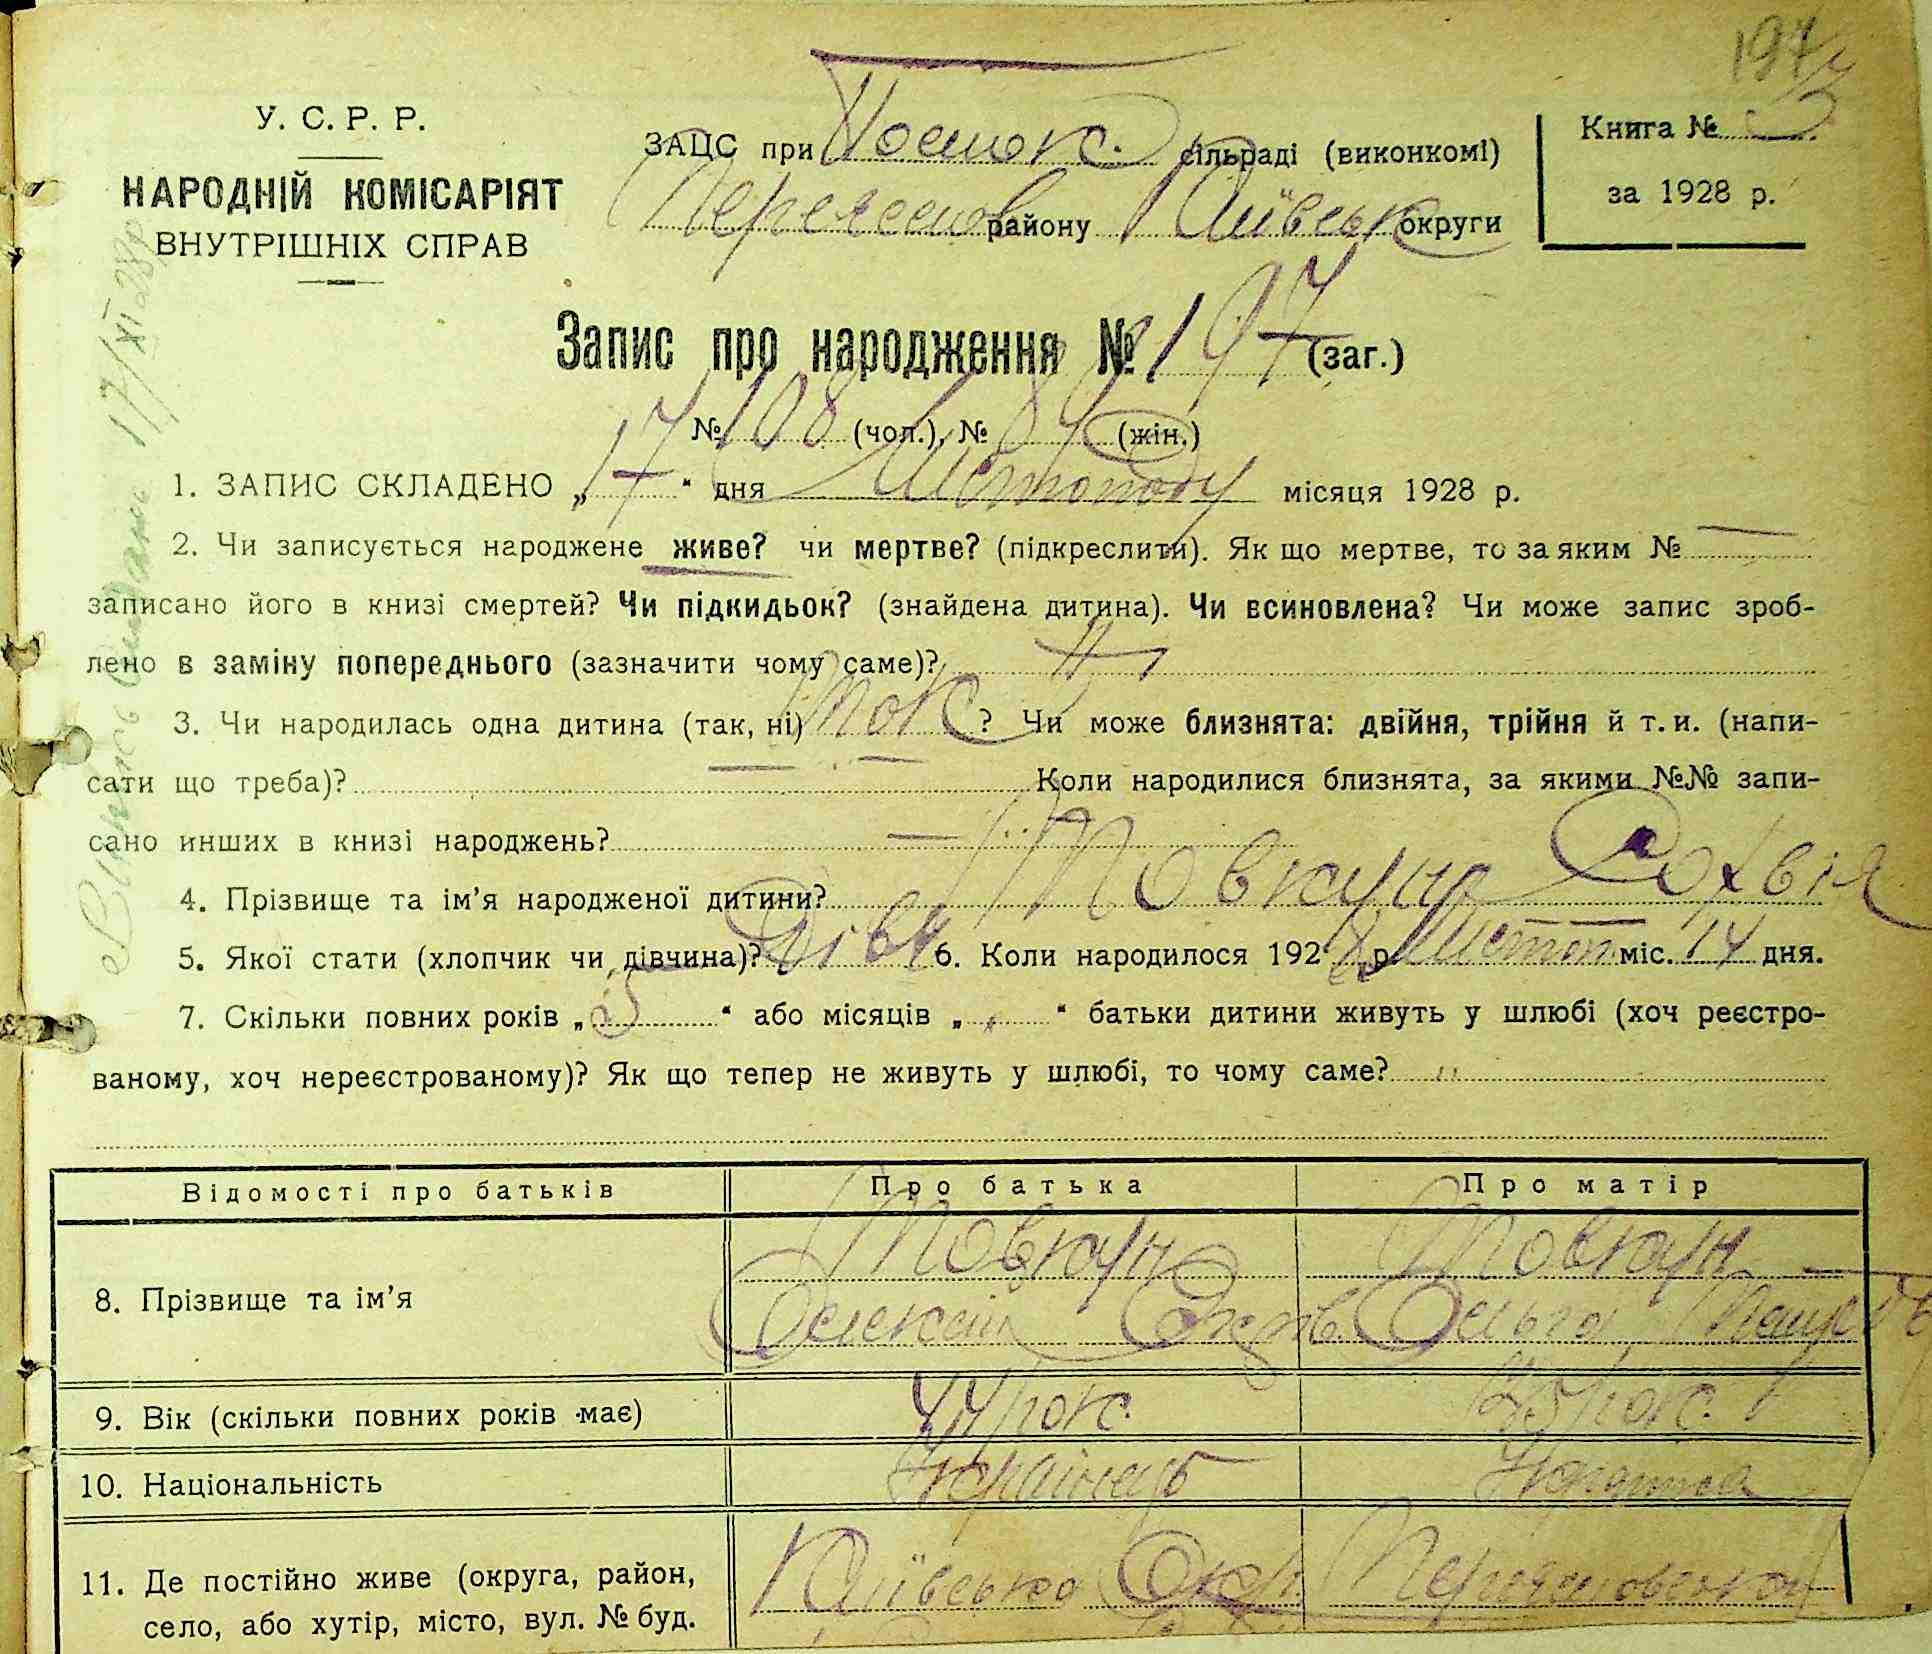 197
У. С. Р. Р.
НАРОДНІЙ КОМІСАРІЯТ
ВНУТРІШНІХ СПРАВ
ЗАЦС при сільраді (виконкомі)
району Київськ округи
Книга № 3
за 1928 р.
Запис про народження № 197 (заг.)
№ 108 (чол.), № 89 (жін.)
1. ЗАПИС СКЛАДЕНО „17“ дня Листопаду місяця 1928 р.
2. Чи записується народжене живе? чи мертве? (підкреслити). Як що мертве, то за яким № —
записано його в книзі смертей? Чи підкидьок? (знайдена дитина). Чи всиновлена? Чи може запис зроб-
лено в заміну попереднього (зазначити чому саме)?
3. Чи народилась одна дитина (так, ні) так? Чи може близнята: двійня, трійня й т. и. (напи-
сати що треба)? Коли народилися близнята, за якими №№ запи-
сано инших в книзі народжень? —
4. Прізвище та ім’я народженої дитини? Товкун Сохвія
5. Якої стати (хлопчик чи дівчина)? Дівч 6. Коли народилося 1928 р. Листоп міс. 14 дня.
7. Скільки повних років „5“ або місяців „ “ батьки дитини живуть у шлюбі (хоч реєстро-
ваному, хоч нереєстрованому)? Як що тепер не живуть у шлюбі, то чому саме? "
Відомості про батьків Про батька Про матір
8. Прізвище та ім’я Товкун Товкун
Олексій Ольга
9. Вік (скільки повних років має) 44 рок. 45 рок.
10. Національність Українець Українка
11. Де постійно живе (округа, район, Київська Окр.
село, або хутір, місто, вул. № буд.
17/XI-28р